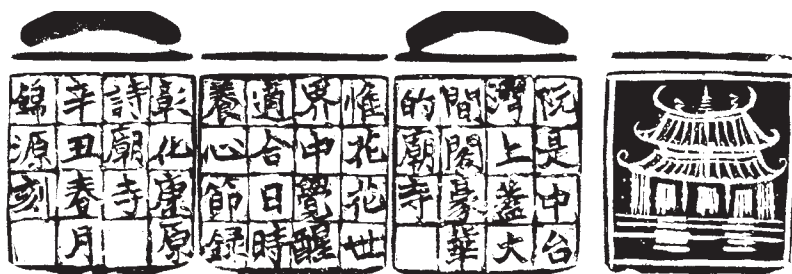 阮是中台
灣上蓋大
間閣豪華
的廟寺
惟花花世
界中覺醒
適合日時
養心節録
彰化康原
詩廟寺
辛丑春月
錦源刻